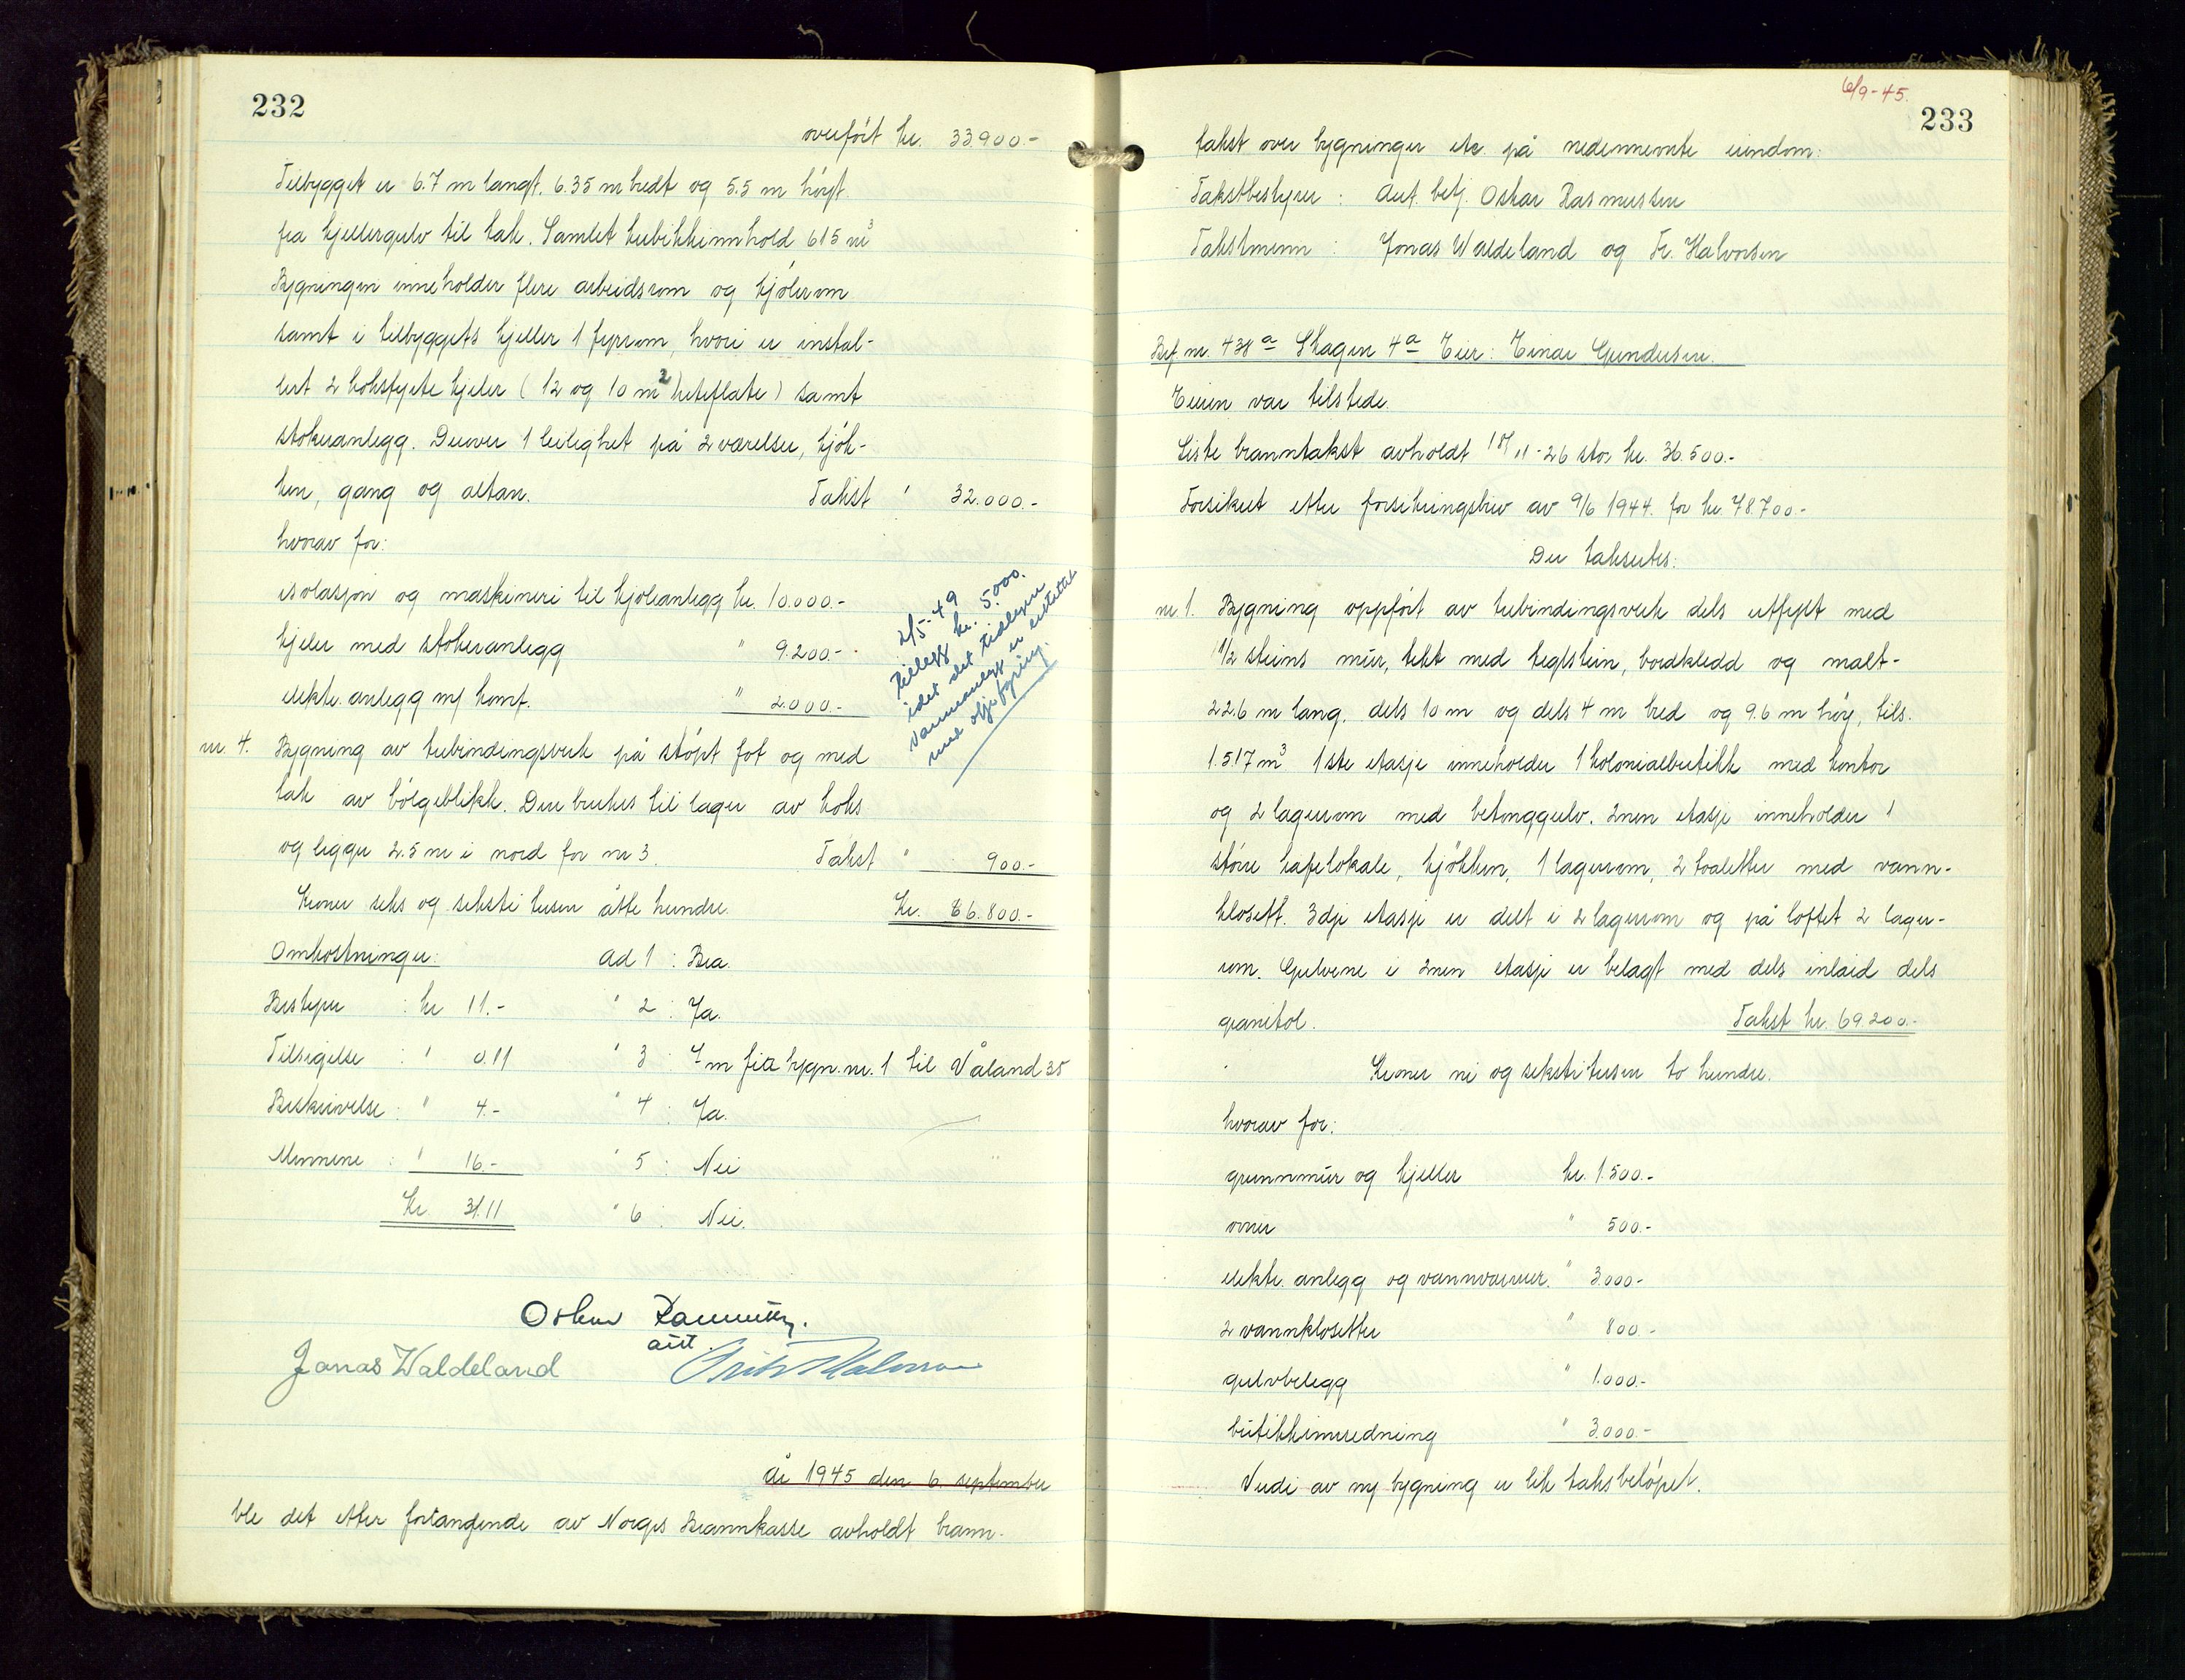 232
overført kr. 33.900.-
Tilbygget er 6.7 m langt, 6.35 m bredt og 5.5 m høyt
fra kjellergulv til tak. Samlet kubikkinnhold 615 m³
Bygningen inneholder flere arbeidsrom og kjølerom
samt i tilbyggets kjeller 1 fyrrom, hvori er instal-
lert 2 koksfyrte kjeler (12 og 10 m² heteflate) samt
stokeranlegg. Derover 1 leilighet på 2 værelser, kjøk-
ken, gang og altan. Takst " 32.000.-
hvorav for:
isolasjon og maskineri til kjøleanlegg kr. 10.000.-
kjeler med stokeranlegg " 9.200.-
elektr. anlegg m/ komf. " 2.000.-
2/5-49
tillegg kr. 5.000.
idet det tidligere
varmeanlegg er erstattet
med oljefyring.
nr. 4. Bygning av trebindingsverk på støpt fot og med
tak av bølgeblikk. Den brukes til lager av koks
og ligger 2.5 m i nord for nr 3. Takst " 900.-
Kroner seks og seksti tusen åtte hundre. Kr. 66.800.-
Omkostninger: ad 1 : Bra.
Bestyrer : kr 11.- " 2 : Ja.
Tilsigelse : " 0.11 " 3 : 7 m fra bygn. nr. 1 til Våland 35
Beskrivelse : " 4.- " 4 : Ja.
Mennene : " 16.- " 5 : Nei
Kr. 31.11 " 6 : Nei.
Oskar Rasmussen.
aut.
Jonas Waldeland Fritz Halvorsen
År 1945 den 6. september
ble det etter forlangende av Norges Brannkasse avholdt brann-
6/9-45.
233
takst over bygninger etc. på nedennevnte eiendom:
Takstbestyrer : Aut. betj. Oskar Rasmussen
Takstmenn : Jonas Waldeland og Fr. Halvorsen
Br. nr. 438ª Skagen 4ª Eier: Einar Gundersen.
Eieren var tilstede.
Siste branntakst avholdt 18/11-26 stor kr. 36.500.-
Forsikret etter forsikringsbrev av 9/6 1944 for kr. 78.700.-
Der takseres:
nr. 1. Bygning oppført av trebindingsverk dels utfylt med
1/2 steins mur, tekt med teglstein, bordkledd og malt-
22.6 m lang, dels 10 m og dels 4 m bred og 9.6 m høy, tils.
1.517 m³ 1ste etasje inneholder 1 kolonialbutikk med kontor
og 2 lagerrom med betonggulv. 2nen etasje inneholder 1
større kafelokale, kjøkken, 1 lagerrom, 2 toaletter med vann-
klosett. 3dje etasje er delt i 2 lagerrom og på loftet 2 lager-
rom. Gulvene i 2nen etasje er belagt med dels inlaid dels
granitol. Takst kr. 69.200.-
Kroner ni og seksti tusen to hundre.
hvorav for:
grunnmur og kjeller kr. 1.500.-
ovner " 500.-
elektr. anlegg og vannvarmer. " 3.000-
2 vannklosetter " 800.-
gulvbelegg " 1.000.-
butikkinnredning " 3.000.-
Verdi av ny bygning er lik taksbeløpet.